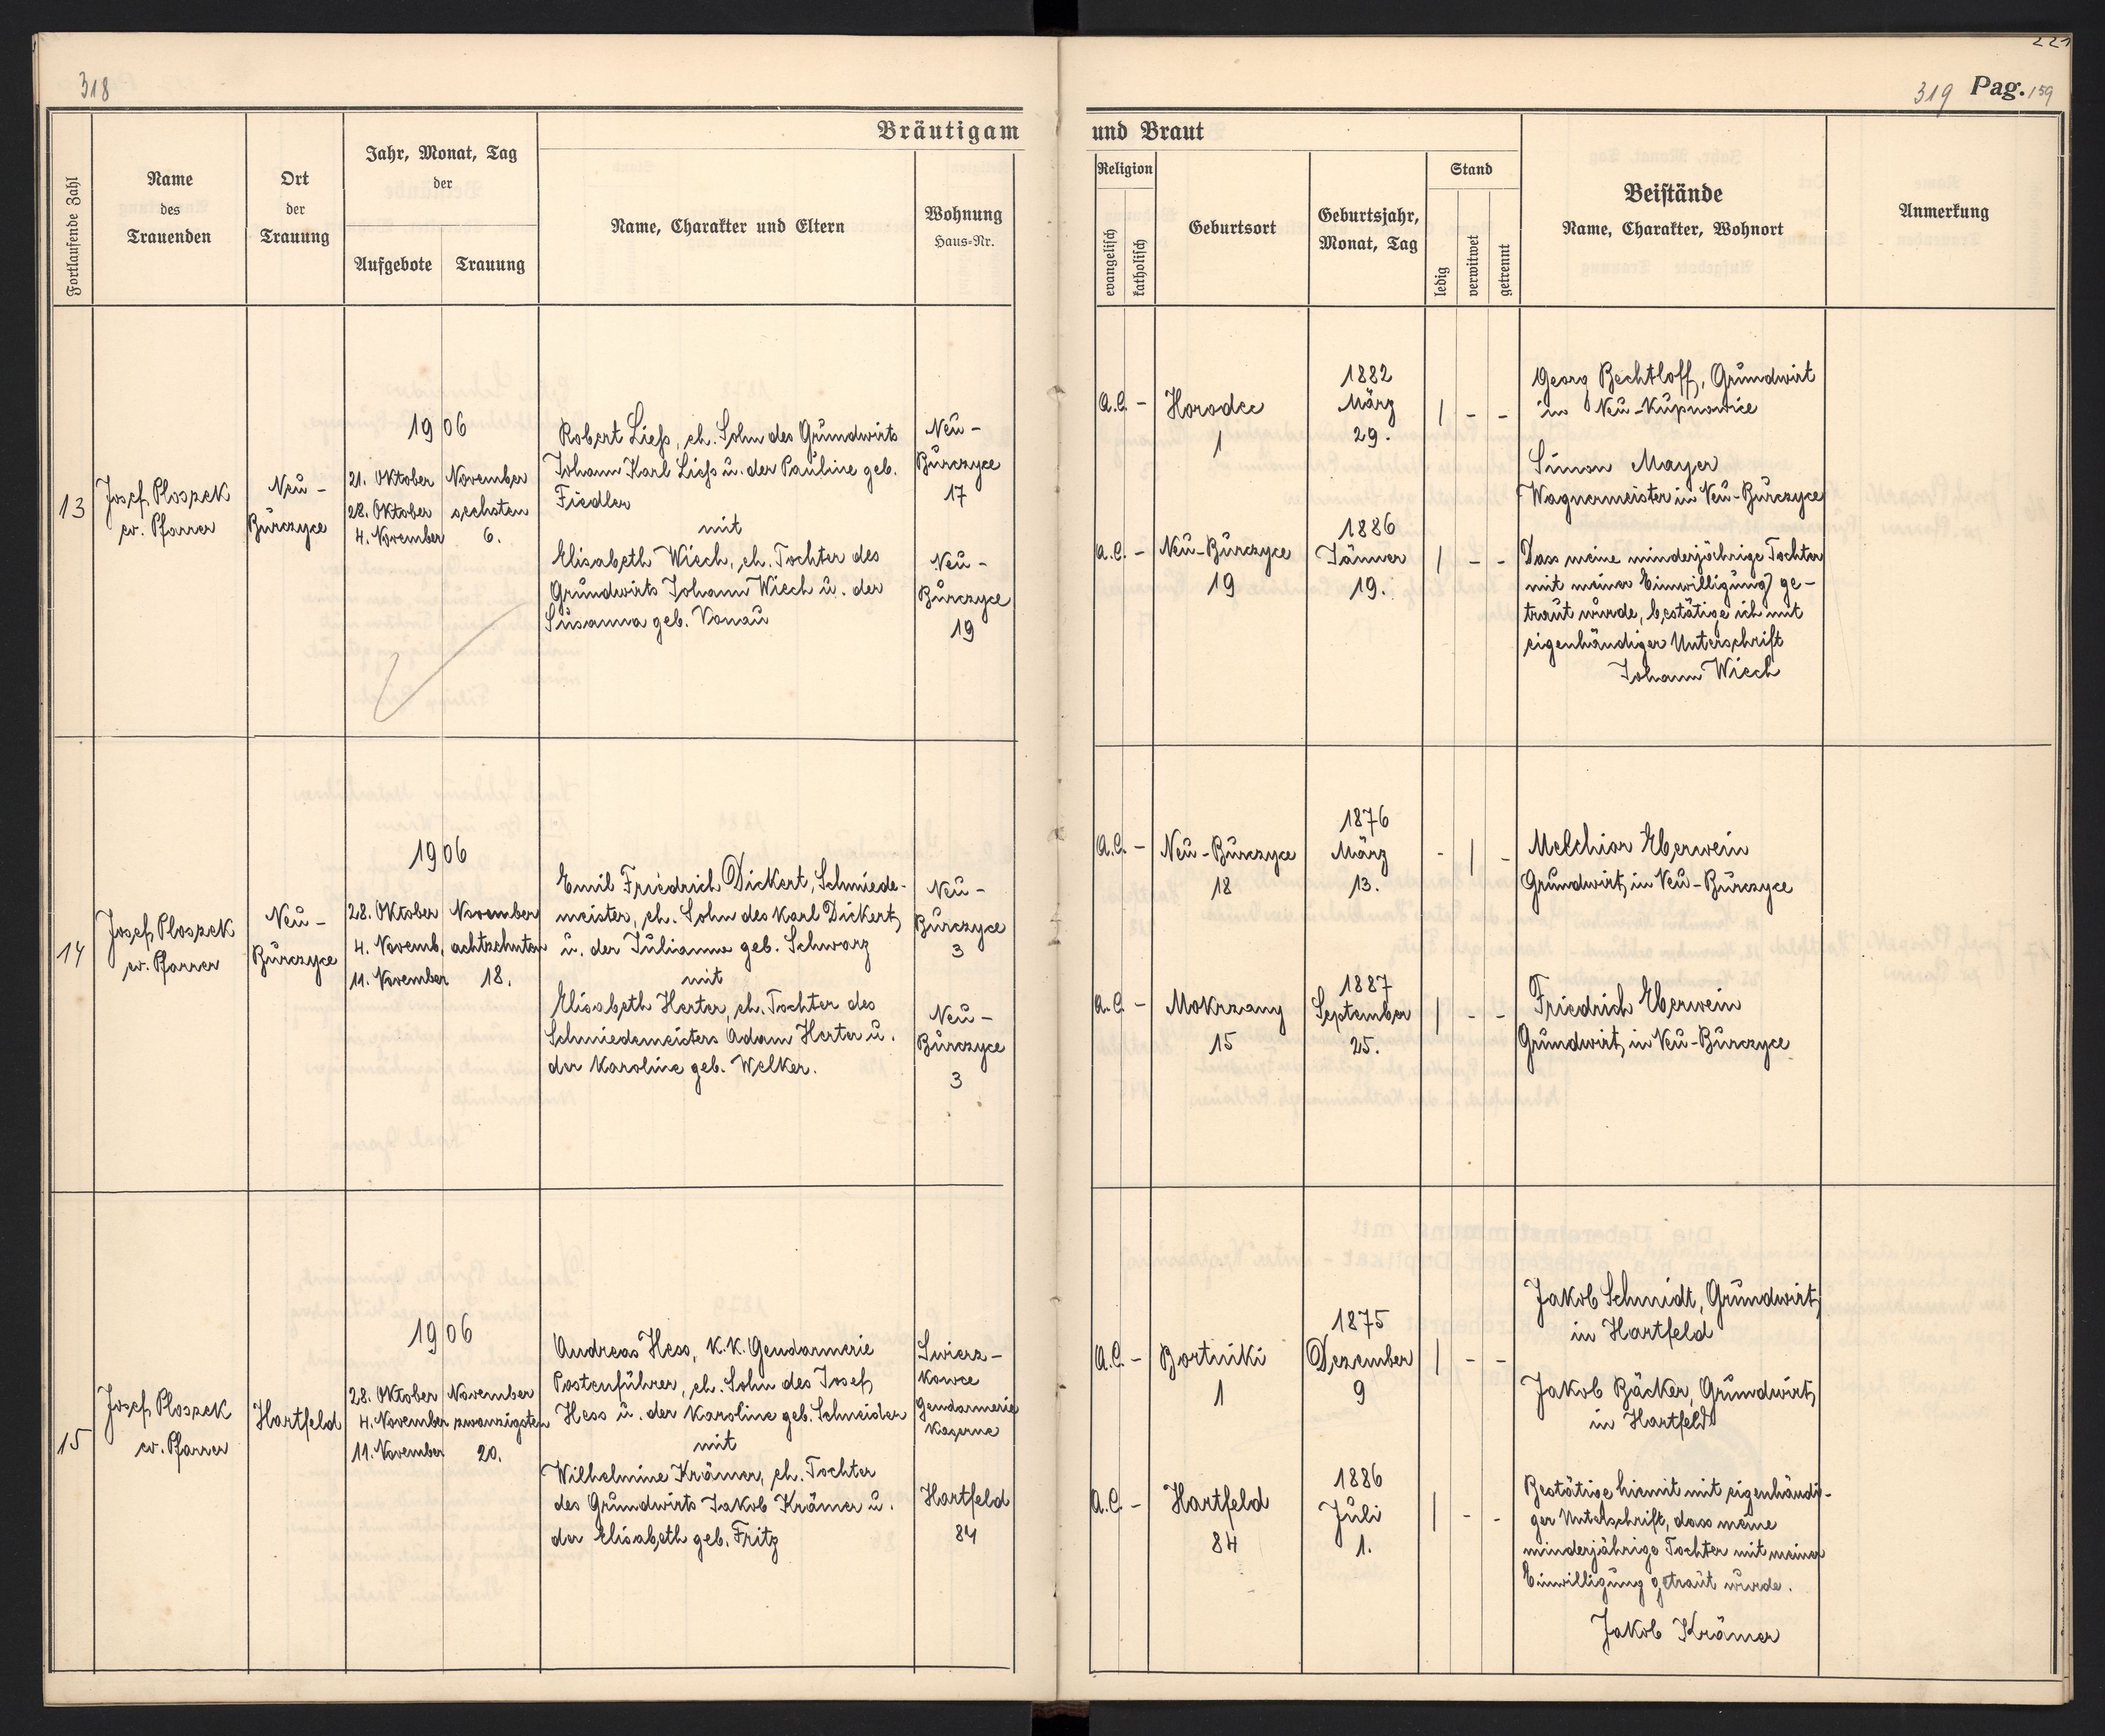 318
Bräutigam
Fortlaufende Zahl
Name
des
Trauenden
Ort
der
Trauung
Jahr, Monat, Tag
der
Aufgebote
Trauung
Name, Charakter und Eltern
Wohnung
Haus-Nr.
13
Josef Ploszek
ev. Pfarrer
Neu-
Burczyce
1906
21. Oktober
28. Oktober
4. November
November
sechsten
6.
Robert Liess, eh. Sohn des Grundwirts
Johann Karl Liess u. der Pauline geb.
Fiedler
mit
Elisabeth Wiech, eh. Tochter des
Grundwirts Johann Wiech u. der
Susanna geb. Vonau
Neu-
Burczyce
17
Neu-
Burczyce
19
14
Josef Ploszek
ev. Pfarrer
Neu-
Burczyce
1906
28. Oktober
4. Novemb.
11. November
November
achtzehnten
18.
Emil Friedrich Dickert, Schmiede-
meister, eh. Sohn des Karl Dickert
u. der Julianne geb. Schwarz
mit
Elisabeth Herter, eh. Tochter des
Schmiedemeisters Adam Herter u.
der Karoline geb. Welker.
Neu-
Burczyce
3
Neu-
Burczyce
3
15
Josef Ploszek
ev. Pfarrer
Hartfeld
1906
28. Oktober
4. November
11. November
November
zwanzigsten
20.
Andreas Hess, K.K. Gendarmerie
Postenführer, eh. Sohn des Josef
Hess u. der Karoline geb. Schneider
mit
Wilhelmine Krämer, eh. Tochter
des Grundwirts Jakob Krämer u.
der Elisabeth geb. Fritz
Swierz-
kowce
Gendarmerie
Kaserne
Hartfeld
84
221
319 Pag. 159
und Braut
Religion
evangelisch
katholisch
Geburtsort
Geburtsjahr,
Monat, Tag
Stand
ledig
verwitwet
getrennt
Beistände
Name, Charakter, Wohnort
Anmerkung
A.C. -
Horodce
1
1882
März
29.
| - -
Georg Bechtloff, Grundwirt
in Neu-Kupnowice
Simon Mayer
Wagnermeister in Neu-Burczyce
A.C. -
Neu-Burczyce
19
1886
Jänner
19.
| - -
Dass meine minderjährige Tochter
mit meiner Einwilligung ge-
traut wurde, bestätige ich mit
eigenhändiger Unterschrift
Johann Wiech
A.C. -
Neu-Burczyce
18
1876
März
13.
- | -
Melchior Eberwein
Grundwirt in Neu-Burczyce
A.C. -
Mokrzany
15
1887
September
25.
| - -
Friedrich Eberwein
Grundwirt in Neu-Burczyce
A.C. -
Bortniki
1
1875
Dezember
9
| - -
Jakob Schmidt, Grundwirt
in Hartfeld
Jakob Bäcker, Grundwirt
in Hartfeld
A.C. -
Hartfeld
84
1886
Juli
1.
| - -
Bestätige hiemit mit eigenhändi-
ger Unterschrift, dass meine
minderjährige Tochter mit meiner
Einwilligung getraut wurde.
Jakob Krämer